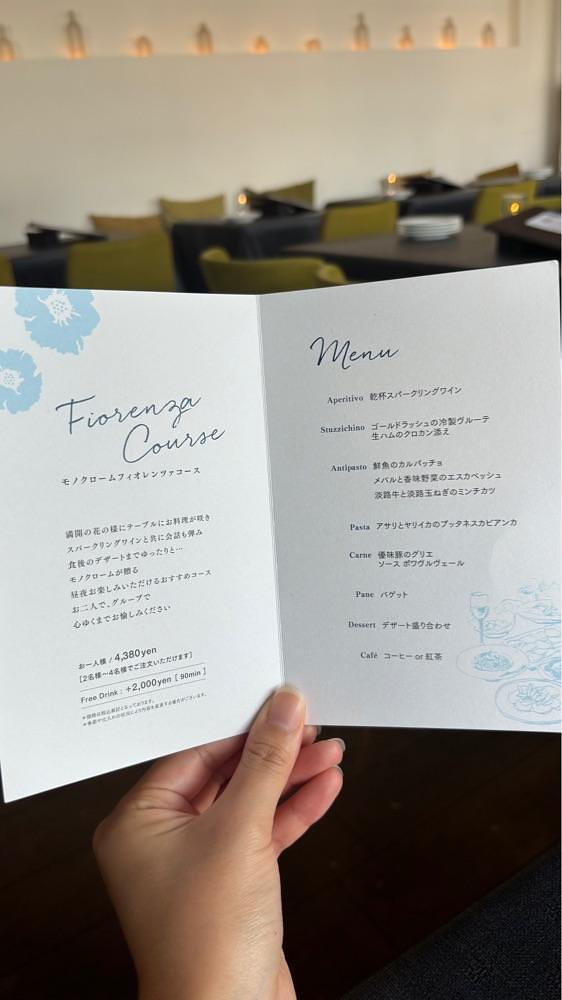 Fiorenza
Course
モノクロームフィオレンツァコース
満開の花の様にテーブルにお料理が咲き
スパークリングワインと共に会話も弾み
食後のデザートまでゆったりと…
モノクロームが贈る
昼夜お楽しみいただけるおすすめコース
お二人で、グループで
心ゆくまでお愉しみください
お一人様 / 4,380yen
[2名様〜4名様でご注文いただけます]
Free Drink : +2,000yen [ 90min ]
※価格は税込表記となっております。
※季節や仕入れの状況により内容を変更する場合がございます。
Menu
Aperitivo 乾杯スパークリングワイン
Stuzzichino ゴールドラッシュの冷製ヴルーテ
生ハムのクロカン添え
Antipasto 鮮魚のカルパッチョ
メバルと香味野菜のエスカベッシュ
淡路牛と淡路玉ねぎのミンチカツ
Pasta アサリとヤリイカのプッタネスカビアンカ
Carne 優味豚のグリエ
ソース ポワヴルヴェール
Pane バゲット
Dessert デザート盛り合わせ
Café コーヒー or 紅茶